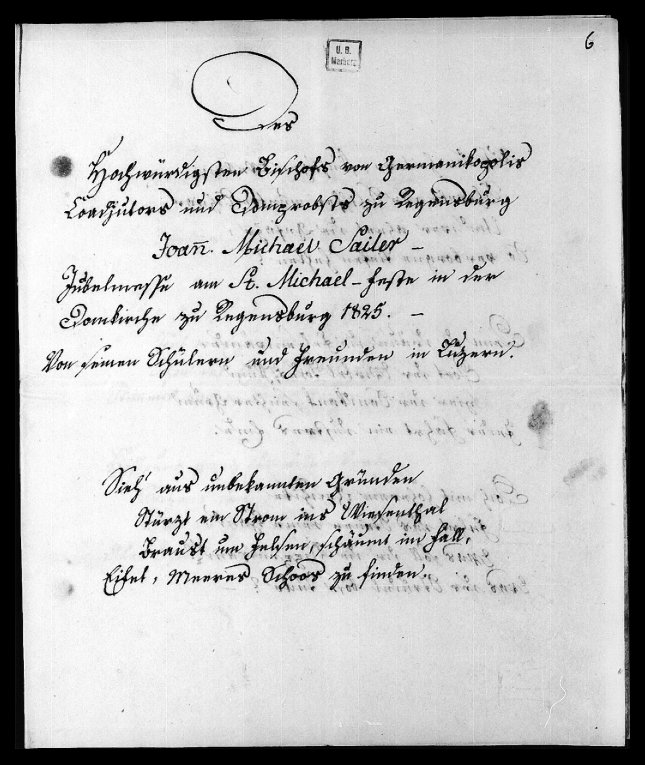 6
U. B.
Marburg
Des
Hochwürdigsten Bischofs von Germanikopolis
Coadjutors und Domprobsts zu Regensburg
Joan̅. Michael Sailer –
Jubelmesse am St. Michael – Feste in der
Domkirche zu Regensburg 1825. –
Von seinen Schülern und Freunden in Luzern.
Sieh' aus unbekannten Gründen
Stürzt ein Strom ins Wiesenthal
Braust um Felsen, schäumt im Fall,
Eifet, Meeres Schoos zu finden.